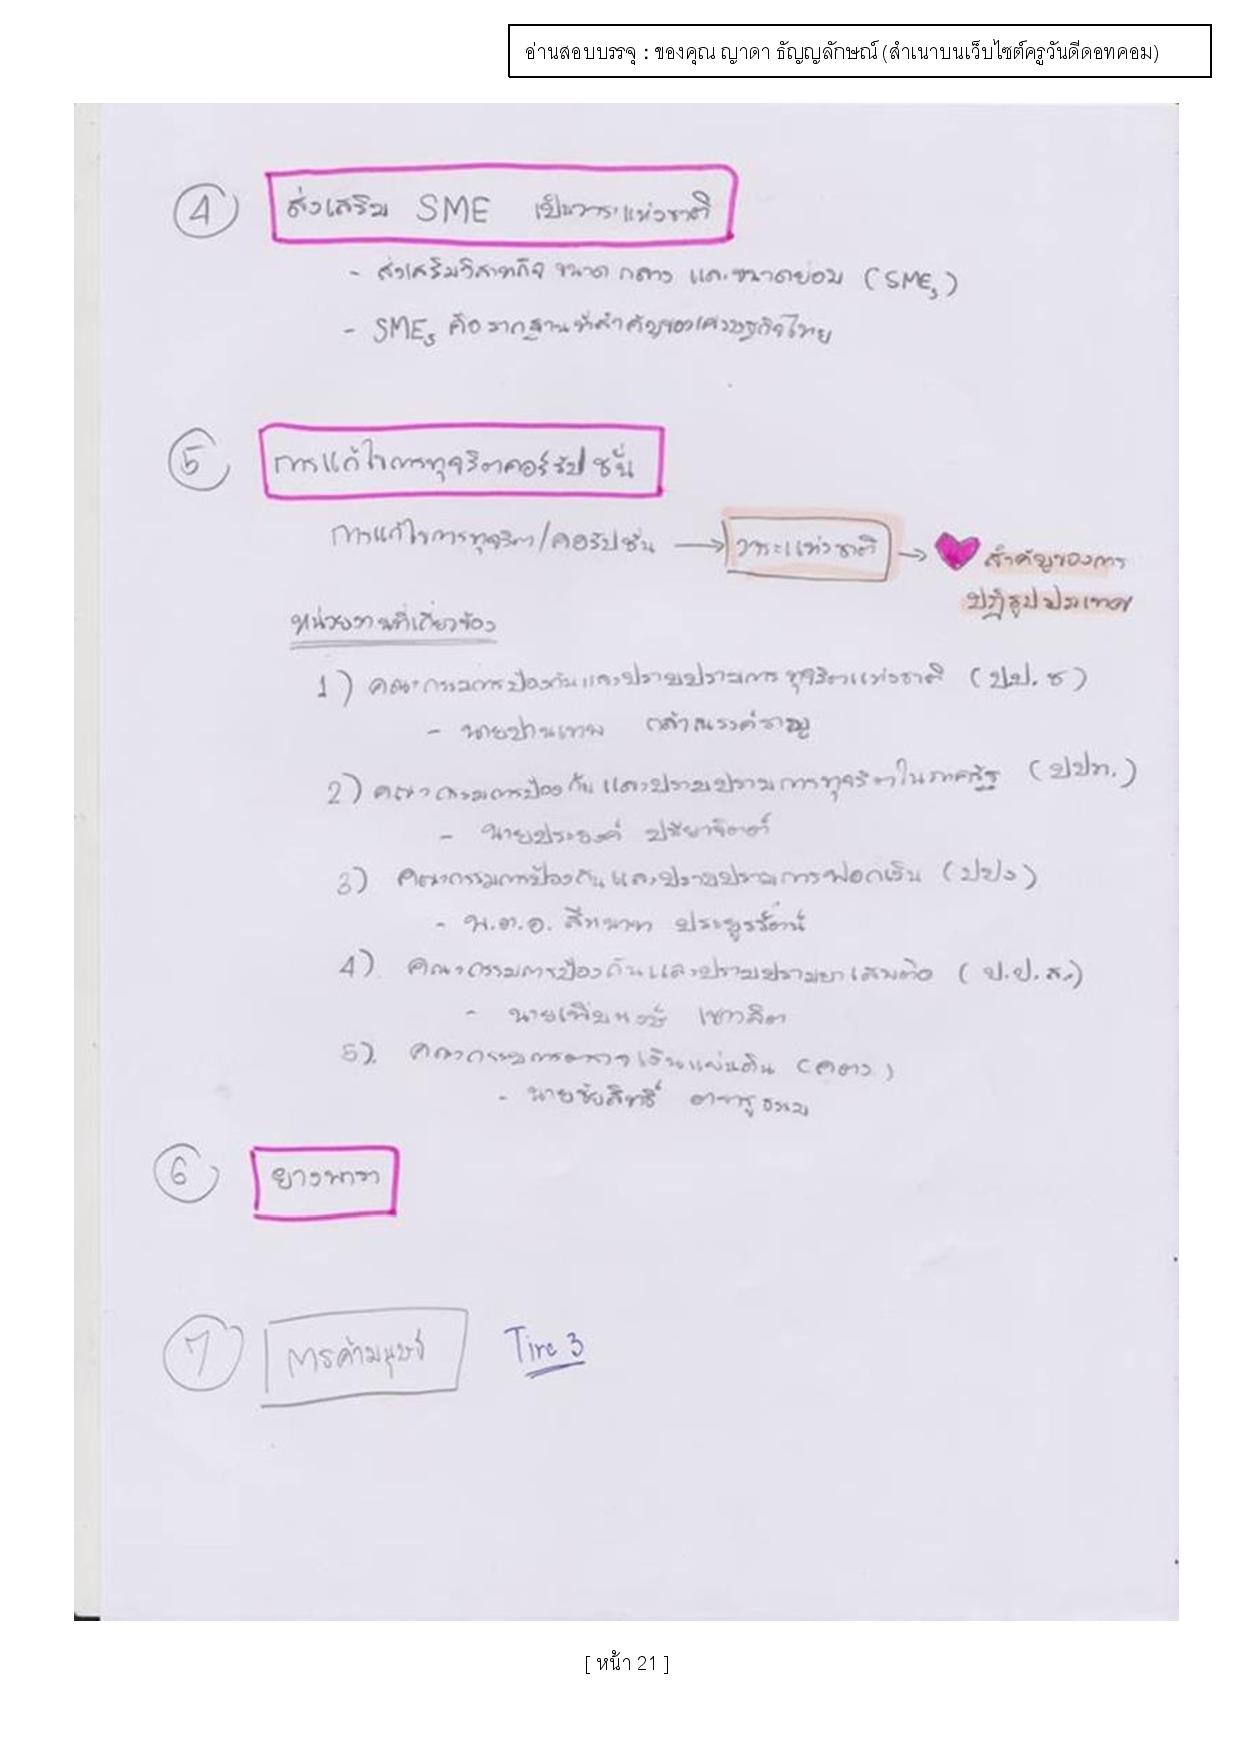 อ่านสอบบรรจุ : ของคุณ ญาดา ธัญญลักษณ์ (สำเนาบนเว็บไซต์ครูวันดีดอทคอม)
4 ส่งเสริม SME เป็นวาระแห่งชาติ
- ส่งเสริมวิสาหกิจ ขนาดกลาง และขนาดย่อม (SMEs)
- SMEs คือรากฐานที่สำคัญของเศรษฐกิจไทย
5 การแก้ไขการทุจริตคอร์รัปชั่น
การแก้ไขการทุจริต/คอรัปชั่น → วาระแห่งชาติ → สำคัญของการ
ปฏิรูปประเทศ
หน่วยงานที่เกี่ยวข้อง
1) คณะกรรมการป้องกันและปราบปรามการทุจริตแห่งชาติ (ปป.ช)
- นายปานเทพ กล้าณรงค์ราญ
2) คณะกรรมการป้องกันและปราบปรามการทุจริตในภาครัฐ (ปปท.)
- นายประยงค์ ปรียาจิตต์
3) คณะกรรมการป้องกันและปราบปรามการฟอกเงิน (ปปง)
- พ.ต.อ. สีหนาท ประยูรรัตน์
4). คณะกรรมการป้องกันและปราบปรามยาเสพติด (ป.ป.ส.)
- นายเพิ่มพงษ์ เชาวลิต
5). คณะกรรมการตรวจเงินแผ่นดิน (คตง)
- นายชัยสิทธิ์ ตราชูธรรม
6 ยางพารา
7 การค้ามนุษย์ Tire 3
[ หน้า 21 ]